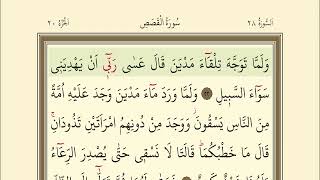 السُّورَةُ ٢٨ سُورَةُ الْقَصَصِ الْجُزْءُ ٢٠
وَلَمَّا تَوَجَّهَ تِلْقَاءَ مَدْيَنَ قَالَ عَسَى رَبِّيٓ أَنْ يَهْدِيَنِي
سَوَآءَ السَّبِيلِ ٢٢ وَلَمَّا وَرَدَ مَآءَ مَدْيَنَ وَجَدَ عَلَيْهِ أُمَّةً
مِنَ النَّاسِ يَسْقُونَ وَوَجَدَ مِنْ دُونِهِمُ امْرَأَتَيْنِ تَذُودَانِ
قَالَ مَا خَطْبُكُمَا قَالَتَا لَا نَسْقِي حَتَّى يُصْدِرَ الرِّعَآءُ